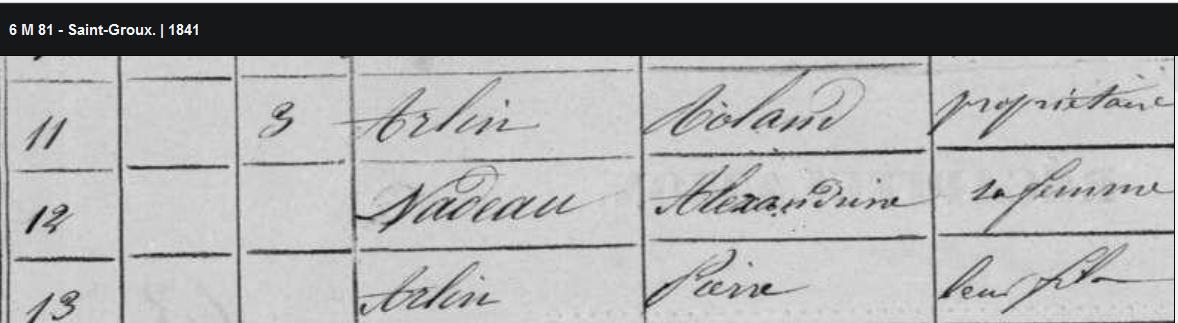 6 M 81 - Saint-Groux. | 1841
11 3 Arlin Roland propriétaire
12 Nadeau Alexandrine sa femme
13 Arlin Pierre leur fils